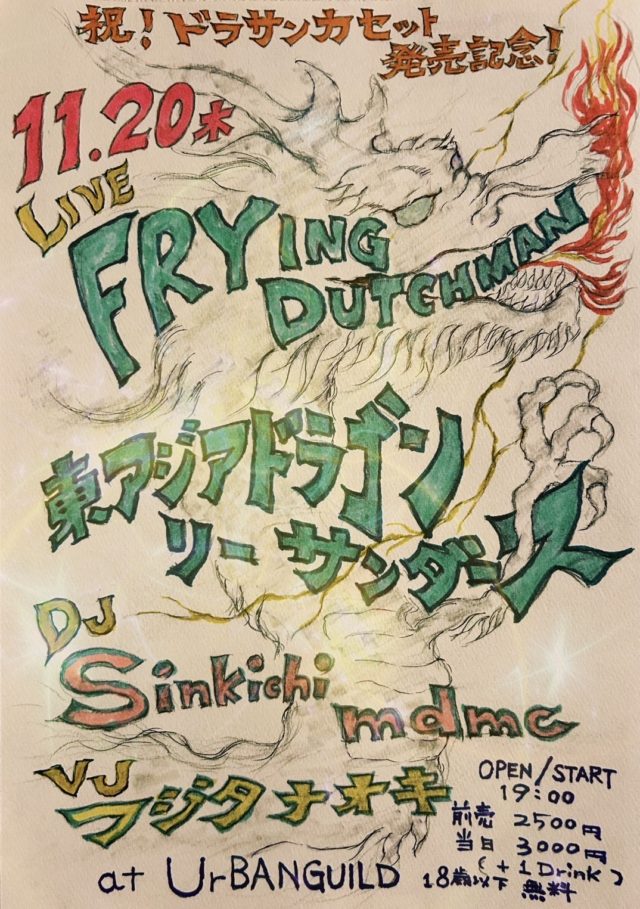 祝！ドラサンカセット
発売記念！
11.20木
LIVE
FRYING
DUTCHMAN
東アジアドラゴン
リーサンダース
DJ
Sinkichi
mdmc
VJ
フジタナオキ
OPEN/START
19:00
前売 2500円
当日 3000円
(+1Drink)
18歳以下 無料
at UrBANGUILD